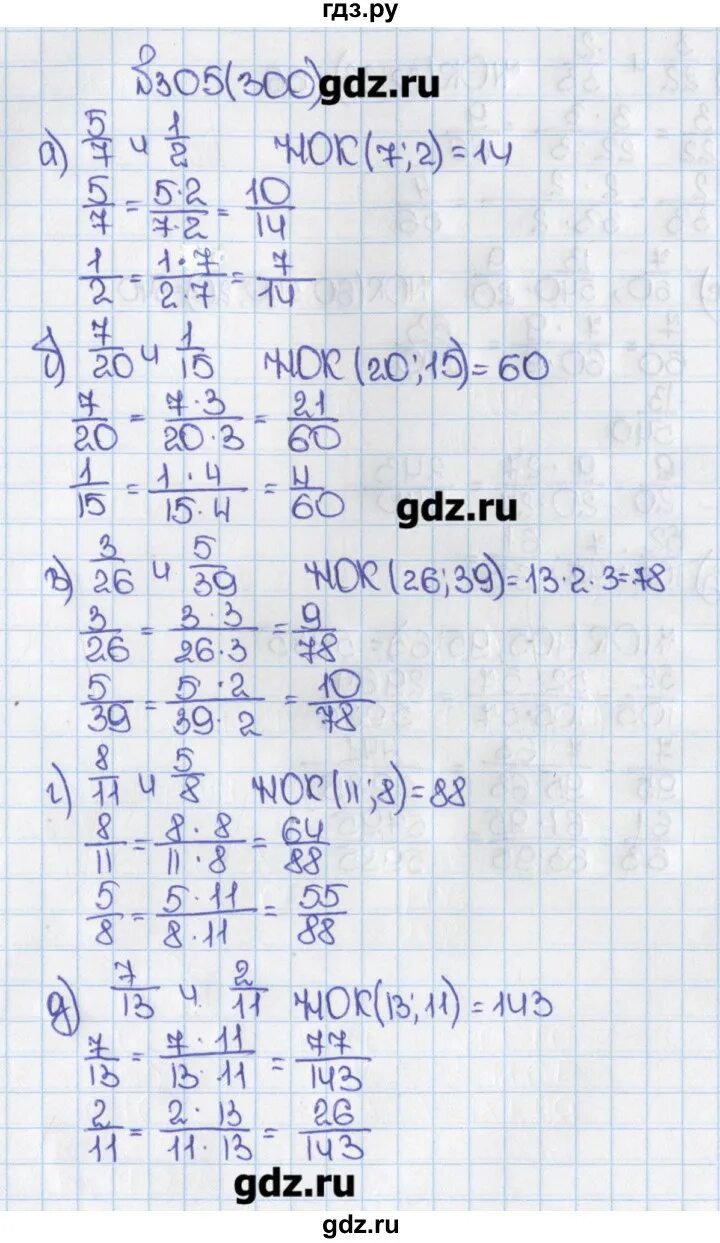 гдз.ру
№305(300) gdz.ru
а) 5/7 и 1/2 НОК(7;2)=14
5/7 = 5·2/7·2 = 10/14
1/2 = 1·7/2·7 = 7/14
б) 7/20 и 1/15 НОК(20;15)=60
7/20 = 7·3/20·3 = 21/60
1/15 = 1·4/15·4 = 4/60
gdz.ru
в) 3/26 и 5/39 НОК(26;39)=13·2·3=78
3/26 = 3·3/26·3 = 9/78
5/39 = 5·2/39·2 = 10/78
г) 8/11 и 5/8 НОК(11;8)=88
8/11 = 8·8/11·8 = 64/88
5/8 = 5·11/8·11 = 55/88
д) 7/13 и 2/11 НОК(13;11)=143
7/13 = 7·11/13·11 = 77/143
2/11 = 2·13/11·13 = 26/143
gdz.ru
gdz.ru